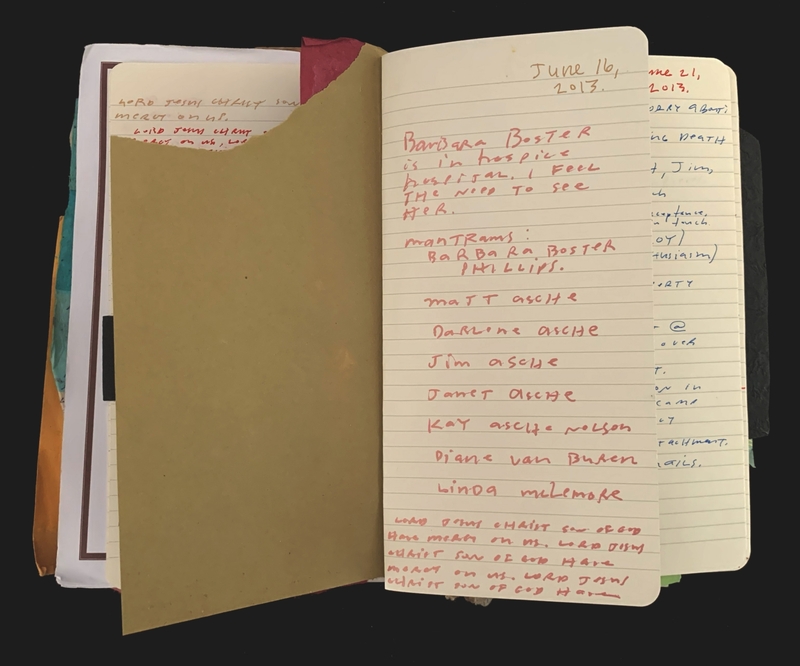 LORD JESUS CHRIST SON
MERCY ON US.
LORD JESUS CHRIST
MERCY ON US, LORD
June 16,
2013.
BarBara BOSTER
is in hospice
hospital. I FEEL
THE NEED TO SEE
HER.
manTRams:
BARBARA BOSTER
PHILLIPS.
maTT ascHe
DaRLene ascHe
Jim ascHe
JaneT ascHe
KaY ascHe nelson
Diane van Buren
LinDa mcLemoRe
LORD JESUS CHRIST SON OF GOD
Have meRCY on us. LORD JESUS
CHRIST SON OF GOD Have
meRCY on us. LORD JESUS
CHRIST SON OF GOD Have
ne 21,
2013.
ORRY aBOUT
ng DeaTH
, Jim,
ch
cceptance.
touch
OY)
husiasm)
ORTY
- @
ouch
T.
on in
came
OY
TacHmenT.
ails.